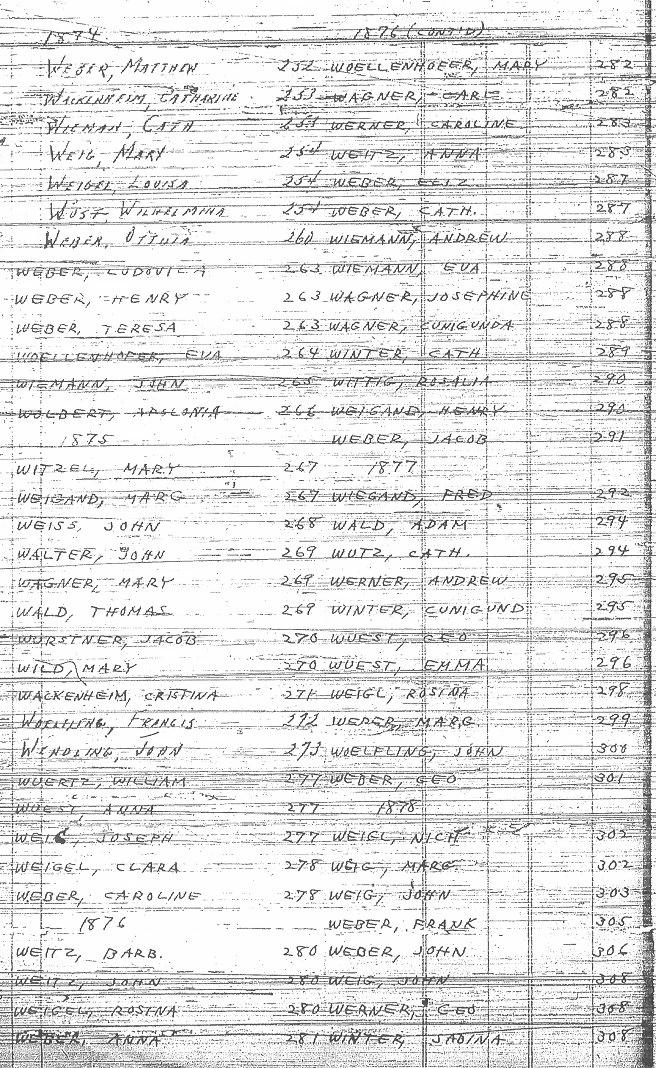 1874
WEBER, MATTHEW 252
WACKENHEIM, CATHARINE 253
WIEMAN, CATH 253
WEIG, MARY 254
WEIGEL, LOUISA 254
WÜST WILHELMINA 254
WEBER, OTTILIA 260
WEBER, LUDOVICA 263
WEBER, HENRY 263
WEBER, TERESA 263
WOELLENHOFER, EVA 264
WIEMANN, JOHN 265
WOLBERT, APOLONIA 266
1875
WITZEL, MARY 267
WEIGAND, MARG 267
WEISS, JOHN 268
WALTER, JOHN 269
WAGNER, MARY 269
WALD, THOMAS 269
WURSTNER, JACOB 270
WILD, MARY 270
WACKENHEIM, CRISTINA 271
WOELFLING, FRANCIS 272
WENDLING, JOHN 273
WUERTZ, WILLIAM 277
WUEST, ANNA 277
WEIG, JOSEPH 277
WEIGEL, CLARA 278
WEBER, CAROLINE 278
1876
WEITZ, BARB. 280
WEITZ, JOHN 280
WEIGEL, ROSINA 280
WEBER, ANNA 281
1876 (CONT'D)
WOELLENHOFER, MARY 282
WAGNER, CARL 282
WERNER, CAROLINE 283
WEITZ, ANNA 283
WEBER, ELIZ 287
WEBER, CATH. 287
WIEMANN, ANDREW 288
WIEMANN, EVA 288
WAGNER, JOSEPHINE 288
WAGNER, CUNIGUNDA 288
WINTER, CATH 289
WITTIG, ROSALIA 290
WEIGAND, HENRY 290
WEBER, JACOB 291
1877
WIEGAND, FRED 292
WALD, ADAM 294
WUTZ, CATH. 294
WERNER, ANDREW 295
WINTER, CUNIGUND 295
WUEST, GEO 296
WUEST, EMMA 296
WEIGL, ROSINA 298
WEBER, MARG. 299
WOELFLING, JOHN 300
WEBER, GEO 301
1878
WEIGL, NICH 302
WEIG, MARG. 302
WEIG, JOHN 303
WEBER, FRANK 305
WEBER, JOHN 306
WEIG, JOHN 308
WERNER, GEO 308
WINTER, SABINA 308